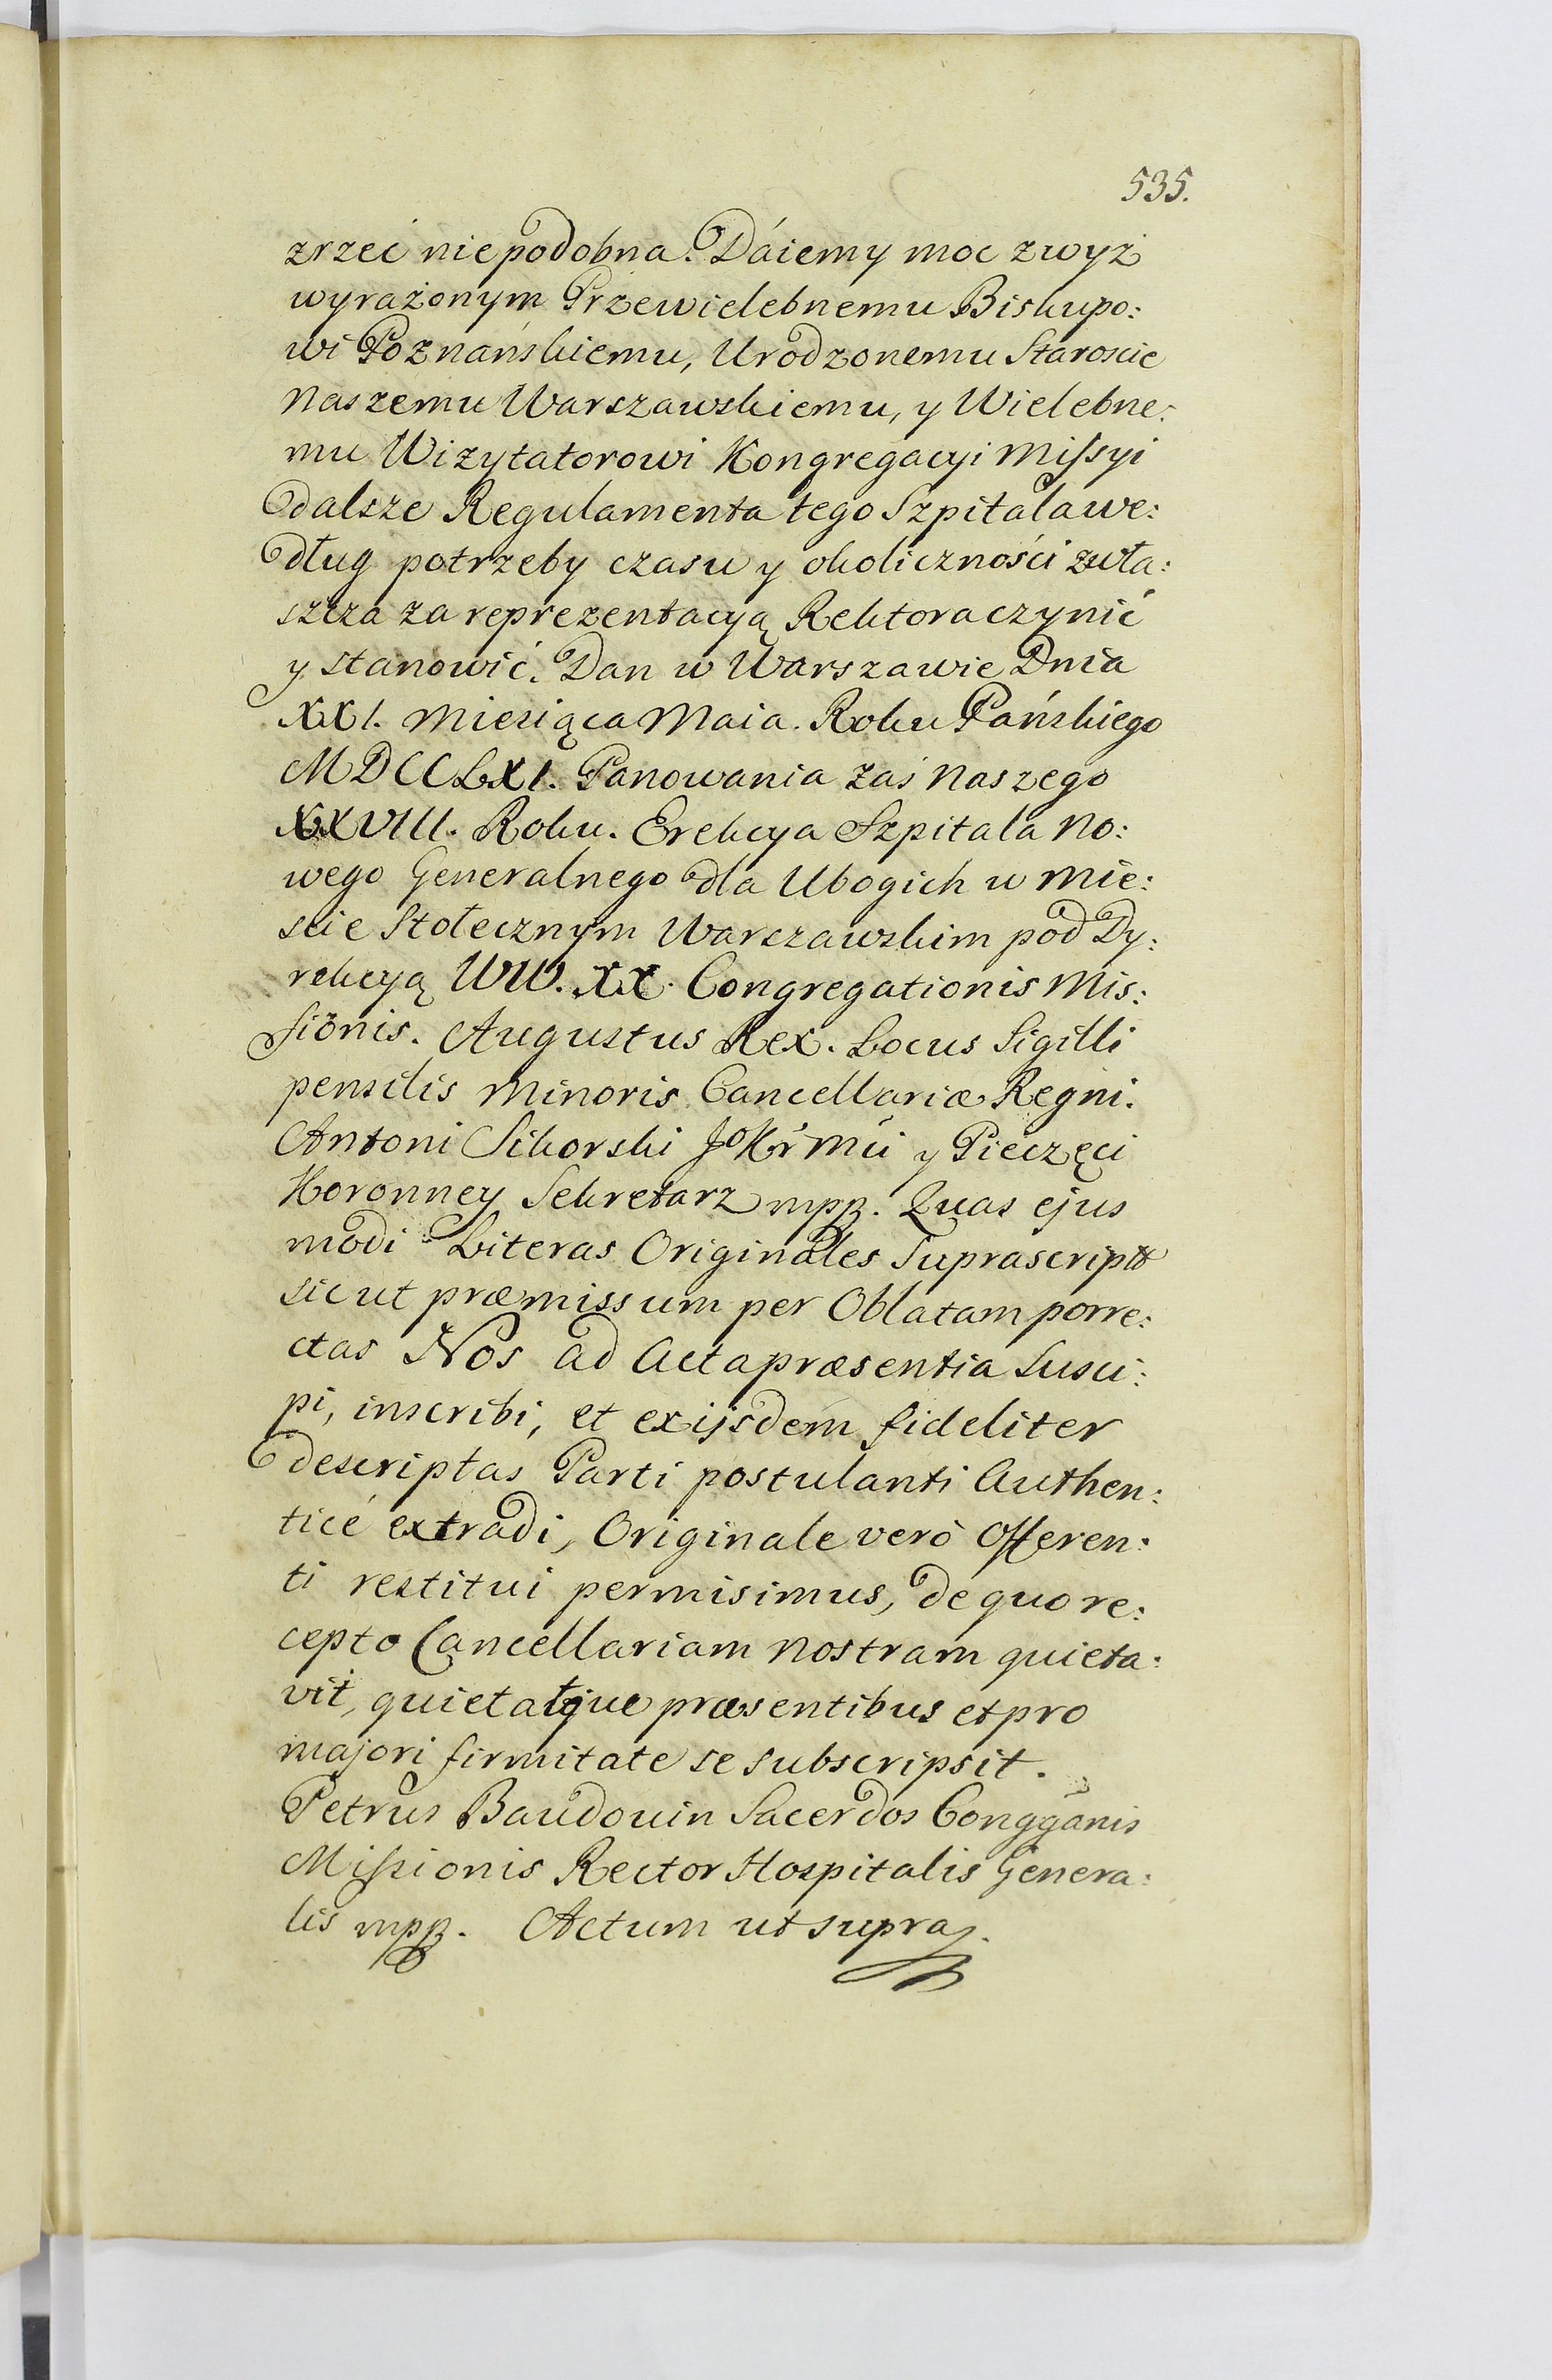 535.
zrzeć niepodobna. Dáiemy moc zwyż
wyrażonym Przewielebnemu Biskupo:
wi Poznańskiemu, Urodzonemu Staroscie
Naszemu Warszawskiemu, y Wielebne:
mu Wizytatorowi Kongregacyi Missyi
dalsze Regulamenta tego Szpitala we:
dług potrzeby czasu y okoliczności zwła:
szcza za reprezentacyą Rektora czynić
y stanowić. Dan w Warszawie Dnia
XXI. Miesiąca Maia. Roku Pańskiego
MDCCLXI. Panowania zaś Naszego
XXVIII. Roku. Erekcya Szpitala No:
wego Generalnego dla Ubogich w Mie:
scie Stołecznym Warszawskim pod Dy:
rekcyą WW. XX. Congregationis Mis:
sionis. Augustus Rex. Locus Sigilli
pensilis Minoris Cancellariæ Regni.
Antoni Sikorski JoKr Mci y Pieczęci
Koronney Sekretarz mpp. Quas ejus
modi Literas Originales Suprascriptas
sicut præmissum per Oblatam porre:
ctas Nos ad Acta præsentia Susci:
pi, inscribi, et ex ijsdem fideliter
descriptas Parti postulanti Authen:
ticé extradi, Originale verò Offeren:
ti restitui permisimus, de quo re:
cepto Cancellariam Nostram quieta:
vit, quietatque præsentibus et pro
majori firmitate se subscripsit.
Petrus Baudouin Sacerdos Congganis
Missionis Rector Hospitalis Genera:
lis mpp. Actum ut supra.